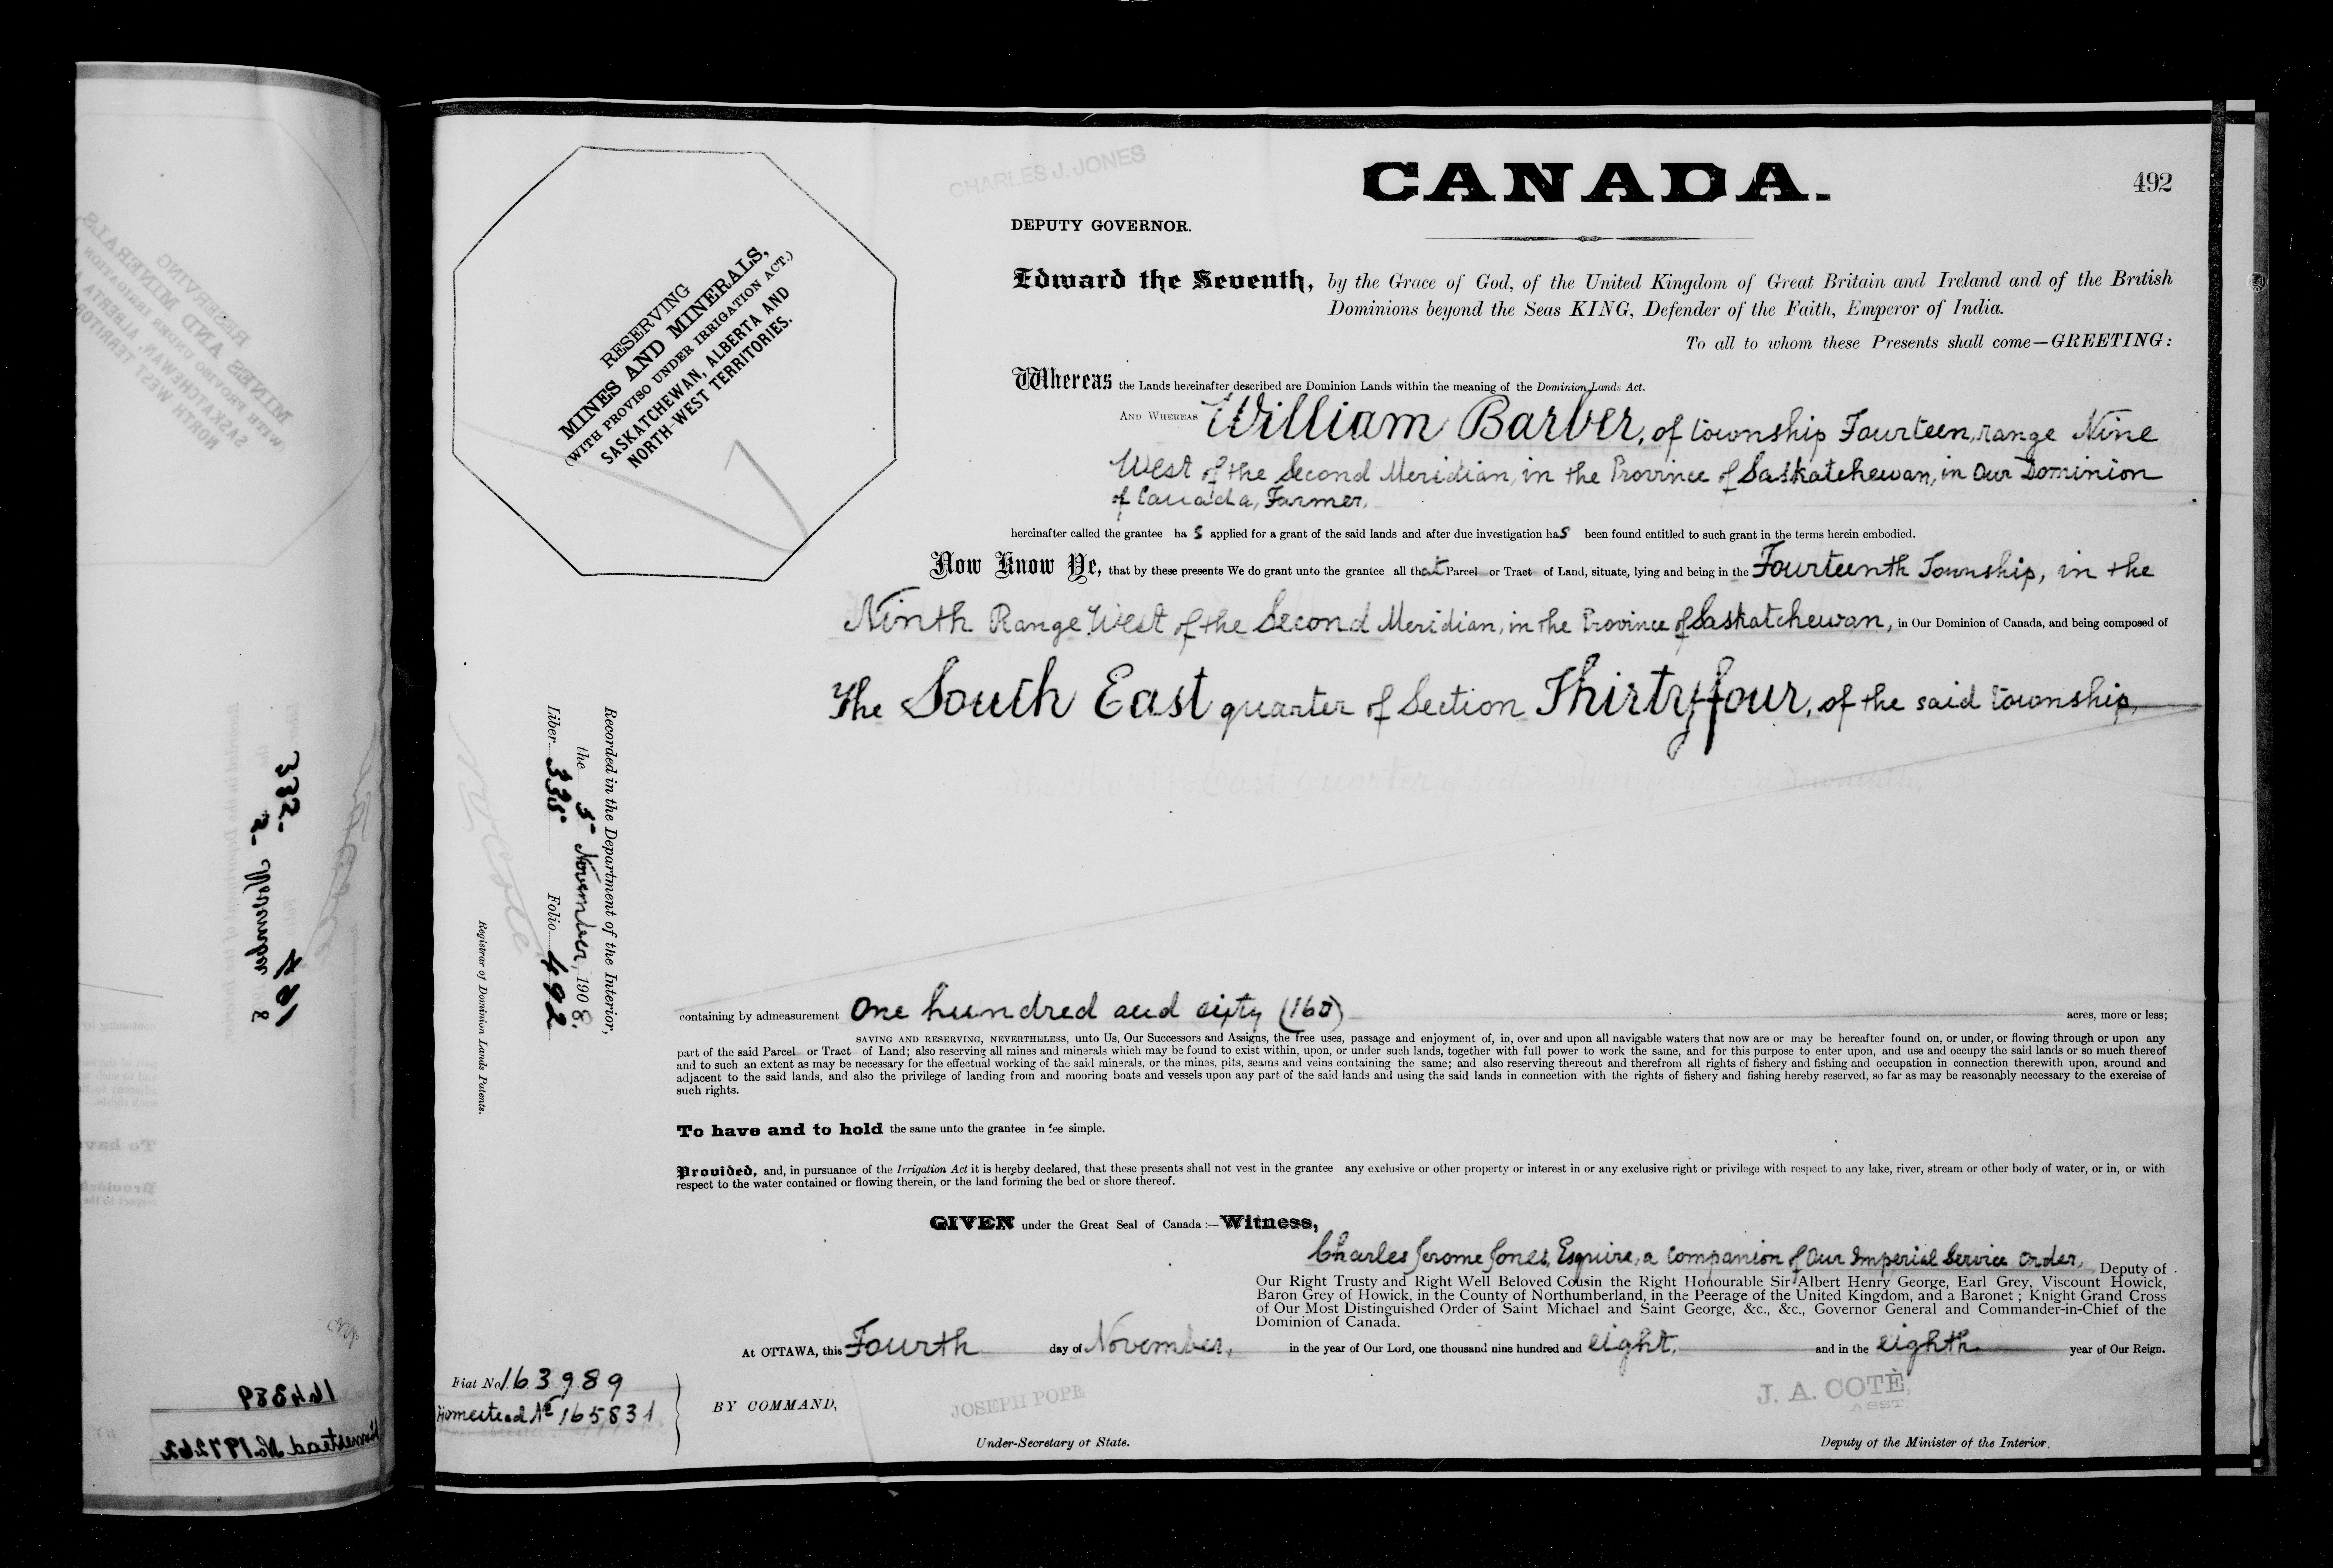 CHARLES J. JONES
CANADA.
492
DEPUTY GOVERNOR.
RESERVING
MINES AND MINERALS,
(WITH PROVISO UNDER IRRIGATION ACT.)
SASKATCHEWAN, ALBERTA AND
NORTH-WEST TERRITORIES.
Edward the Seventh, by the Grace of God, of the United Kingdom of Great Britain and Ireland and of the British
Dominions beyond the Seas KING, Defender of the Faith, Emperor of India.
To all to whom these Presents shall come—GREETING:
Whereas the Lands hereinafter described are Dominion Lands within the meaning of the Dominion Lands Act.
AND WHEREAS William Barber, of township Fourteen, range Nine
West of the Second Meridian, in the Province of Saskatchewan, in Our Dominion
of Canada, Farmer,
hereinafter called the grantee has applied for a grant of the said lands and after due investigation has been found entitled to such grant in the terms herein embodied.
Now Know Ye, that by these presents We do grant unto the grantee all that Parcel or Tract of Land, situate, lying and being in the Fourteenth Township, in the
Ninth Range West of the Second Meridian, in the Province of Saskatchewan, in Our Dominion of Canada, and being composed of
The South East quarter of Section Thirty-four, of the said township,
Recorded in the Department of the Interior,
the 5 November, 1908.
Liber 335 Folio 492
Registrar of Dominion Lands Patents.
containing by admeasurement One hundred and sixty (160) acres, more or less;
SAVING AND RESERVING, NEVERTHELESS, unto Us, Our Successors and Assigns, the free uses, passage and enjoyment of, in, over and upon all navigable waters that now are or may be hereafter found on, or under, or flowing through or upon any
part of the said Parcel or Tract of Land; also reserving all mines and minerals which may be found to exist within, upon, or under such lands, together with full power to work the same, and for this purpose to enter upon, and use and occupy the said lands or so much thereof
and to such an extent as may be necessary for the effectual working of the said minerals, or the mines, pits, seams and veins containing the same; and also reserving thereout and therefrom all rights of fishery and fishing and occupation in connection therewith upon, around and
adjacent to the said lands, and also the privilege of landing from and mooring boats and vessels upon any part of the said lands and using the said lands in connection with the rights of fishery and fishing hereby reserved, so far as may be reasonably necessary to the exercise of
such rights.
To have and to hold the same unto the grantee in fee simple.
Provided, and, in pursuance of the Irrigation Act it is hereby declared, that these presents shall not vest in the grantee any exclusive or other property or interest in or any exclusive right or privilege with respect to any lake, river, stream or other body of water, or in, or with
respect to the water contained or flowing therein, or the land forming the bed or shore thereof.
GIVEN under the Great Seal of Canada:—Witness,
Charles Jerome Jones, Esquire, a Companion of Our Imperial Service Order, Deputy of
Our Right Trusty and Right Well Beloved Cousin the Right Honourable Sir Albert Henry George, Earl Grey, Viscount Howick,
Baron Grey of Howick, in the County of Northumberland, in the Peerage of the United Kingdom, and a Baronet; Knight Grand Cross
of Our Most Distinguished Order of Saint Michael and Saint George, &c., &c., Governor General and Commander-in-Chief of the
Dominion of Canada.
At OTTAWA, this Fourth day of November, in the year of Our Lord, one thousand nine hundred and eight, and in the eighth year of Our Reign.
Fiat No 163989
Homestead No 165831
BY COMMAND,
JOSEPH POPE
Under-Secretary of State.
J. A. COTÉ,
ASST
Deputy of the Minister of the Interior.